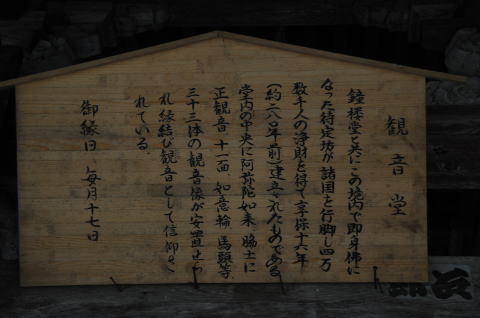 観音堂
鐘楼堂と共にこの境内で即身佛に
なった待定坊が諸国を行脚し四万
数千人の浄財を得て享保十六年
(約二八〇年前)建立されたものである
堂内の中央に阿弥陀如来、脇士に
正観音、十一面、如意輪、馬頭等
三十三体の観音像が安置せら
れ縁結び観音として信仰さ
れている。
御縁日 毎月十七日